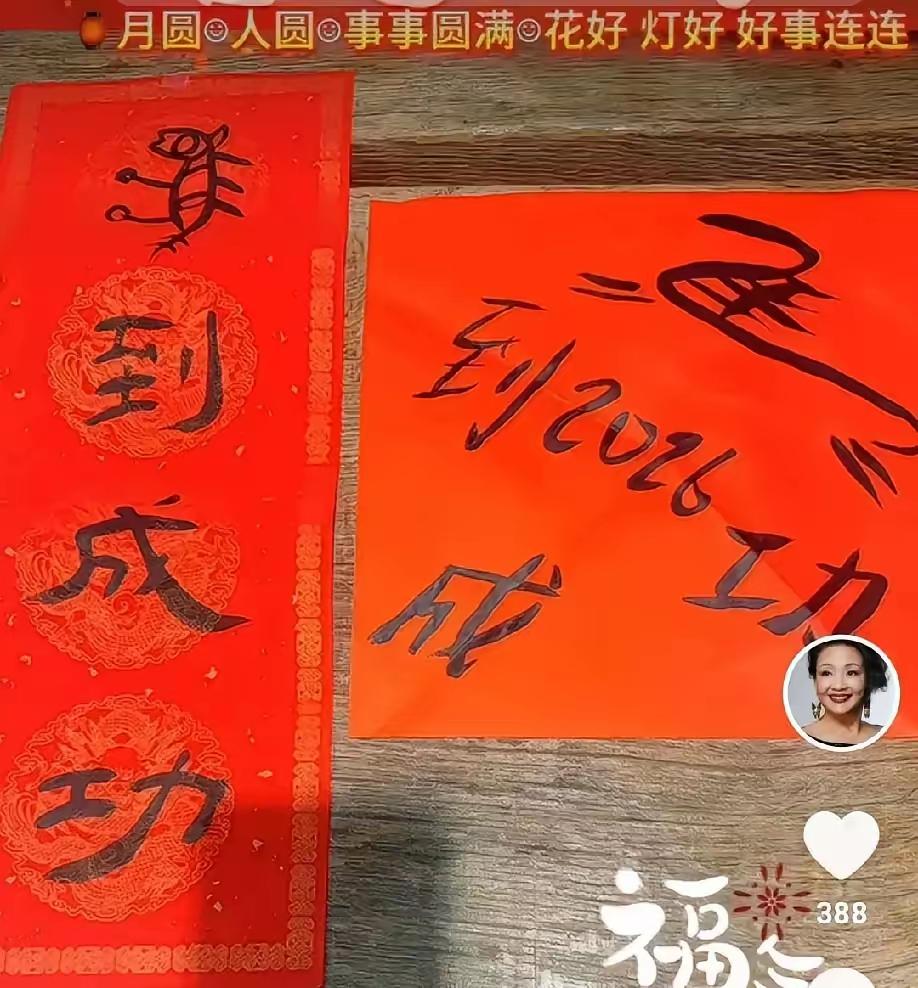 🏮月圆☺人圆☺事事圆满☺花好 灯好 好事连连
到
成
功
到2026
成功
388
福